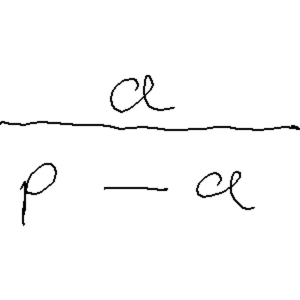 a
p - a